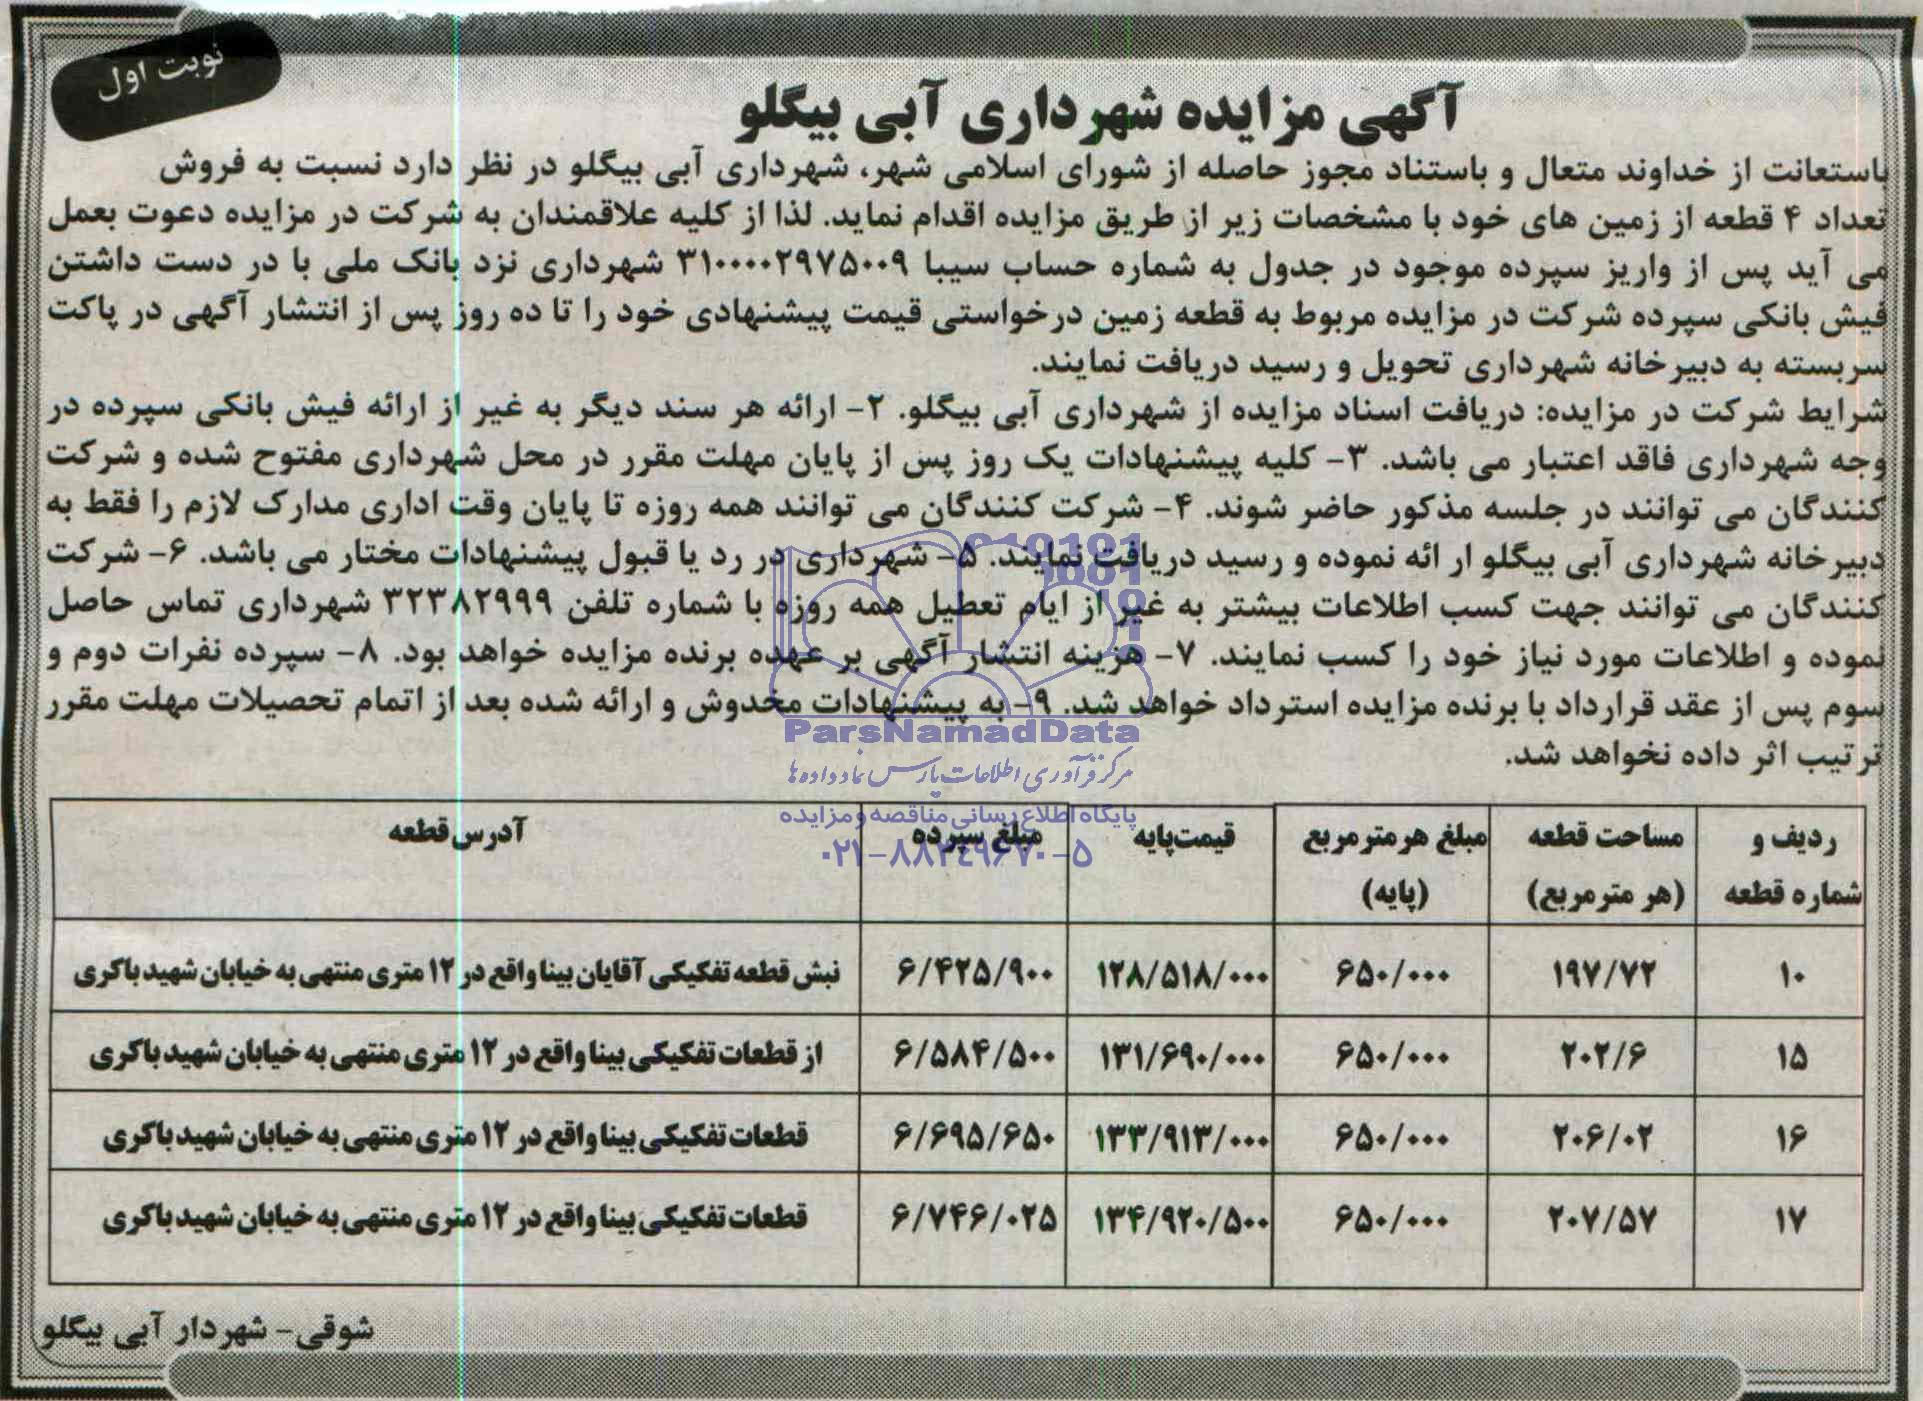 نوبت اول
آگهی مزایده شهرداری آبی بیگلو
باستعانت از خداوند متعال و باستناد مجوز حاصله از شورای اسلامی شهر، شهرداری آبی بیگلو در نظر دارد نسبت به فروش
تعداد ۴ قطعه از زمین های خود با مشخصات زیر از طریق مزایده اقدام نماید. لذا از کلیه علاقمندان به شرکت در مزایده دعوت بعمل
می آید پس از واریز سپرده موجود در جدول به شماره حساب سیبا ۳۱۰۰۰۰۲۹۷۵۰۰۹ شهرداری نزد بانک ملی با در دست داشتن
فیش بانکی سپرده شرکت در مزایده مربوط به قطعه زمین درخواستی قیمت پیشنهادی خود را تا ده روز پس از انتشار آگهی در پاکت
سربسته به دبیرخانه شهرداری تحویل و رسید دریافت نمایند.
شرایط شرکت در مزایده: دریافت اسناد مزایده از شهرداری آبی بیگلو. ۲- ارائه هر سند دیگر به غیر از ارائه فیش بانکی سپرده در
وجه شهرداری فاقد اعتبار می باشد. ۳- کلیه پیشنهادات یک روز پس از پایان مهلت مقرر در محل شهرداری مفتوح شده و شرکت
کنندگان می توانند در جلسه مذکور حاضر شوند. ۴- شرکت کنندگان می توانند همه روزه تا پایان وقت اداری مدارک لازم را فقط به
دبیرخانه شهرداری آبی بیگلو ار ائه نموده و رسید دریافت نمایند. ۵- شهرداری در رد یا قبول پیشنهادات مختار می باشد. ۶- شرکت
کنندگان می توانند جهت کسب اطلاعات بیشتر به غیر از ایام تعطیل همه روزه با شماره تلفن ۳۲۳۸۲۹۹۹ شهرداری تماس حاصل
نموده و اطلاعات مورد نیاز خود را کسب نمایند. ۷- هزینه انتشار آگهی بر عهده برنده مزایده خواهد بود. ۸- سپرده نفرات دوم و
سوم پس از عقد قرارداد با برنده مزایده استرداد خواهد شد. ۹- به پیشنهادات مخدوش و ارائه شده بعد از اتمام تحصیلات مهلت مقرر
ترتیب اثر داده نخواهد شد.
ParsNamadData
مرکز فرآوری اطلاعات پارس نماد داده ها
پایگاه اطلاع رسانی مناقصه و مزایده
۰۲۱-۸۸۳۴۹۶۷۰-۵
ردیف و شماره قطعه | مساحت قطعه (هر متر مربع) | مبلغ هر متر مربع (پایه) | قیمت پایه | مبلغ سپرده | آدرس قطعه
۱۰ | ۱۹۷/۷۲ | ۶۵۰/۰۰۰ | ۱۲۸/۵۱۸/۰۰۰ | ۶/۴۲۵/۹۰۰ | نبش قطعه تفکیکی آقایان بینا واقع در ۱۲ متری منتهی به خیابان شهید باکری
۱۵ | ۲۰۲/۶ | ۶۵۰/۰۰۰ | ۱۳۱/۶۹۰/۰۰۰ | ۶/۵۸۴/۵۰۰ | از قطعات تفکیکی بینا واقع در ۱۲ متری منتهی به خیابان شهید باکری
۱۶ | ۲۰۶/۰۲ | ۶۵۰/۰۰۰ | ۱۳۳/۹۱۳/۰۰۰ | ۶/۶۹۵/۶۵۰ | قطعات تفکیکی بینا واقع در ۱۲ متری منتهی به خیابان شهید باکری
۱۷ | ۲۰۷/۵۷ | ۶۵۰/۰۰۰ | ۱۳۴/۹۲۰/۵۰۰ | ۶/۷۴۶/۰۲۵ | قطعات تفکیکی بینا واقع در ۱۲ متری منتهی به خیابان شهید باکری
شوقی- شهردار آبی بیگلو